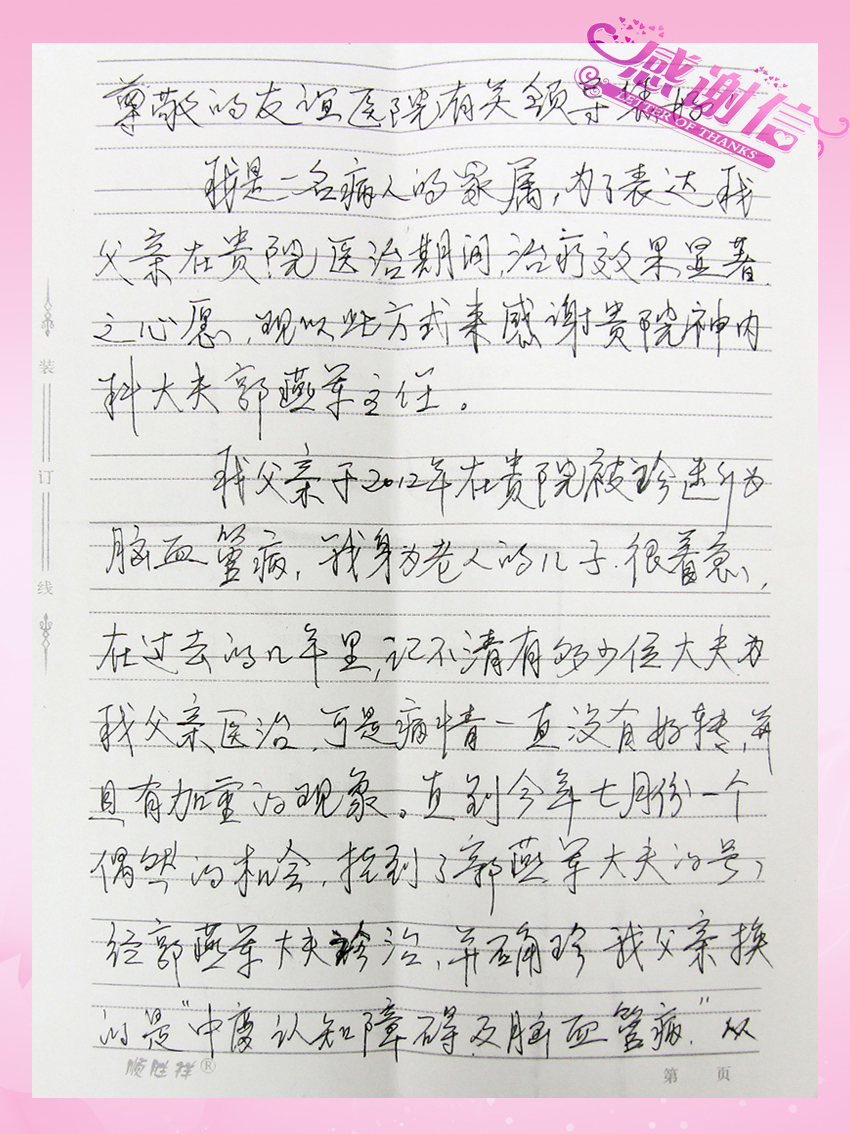 感谢信
LETTER OF THANKS
尊敬的友谊医院有关领导您好
我是一名病人的家属，为了表达我
父亲在贵院医治期间，治疗效果显著
之心愿，现以此方式来感谢贵院神内
科大夫郭燕军主任。
我父亲于2012年在贵院被珍断为
脑血管病，我身为老人的儿子.很着急，
在过去的几年里，记不清有多少位大夫为
我父亲医治，可是病情一直没有好转，并
且有加重的现象。直到今年七月份一个
偶然的机会，挂到了郭燕军大夫的号，
经郭燕军大夫珍治，并确珍我父亲换
的是“中度认知障碍及脑血管病.”从
装
订
线
顺胜祥®
第 页